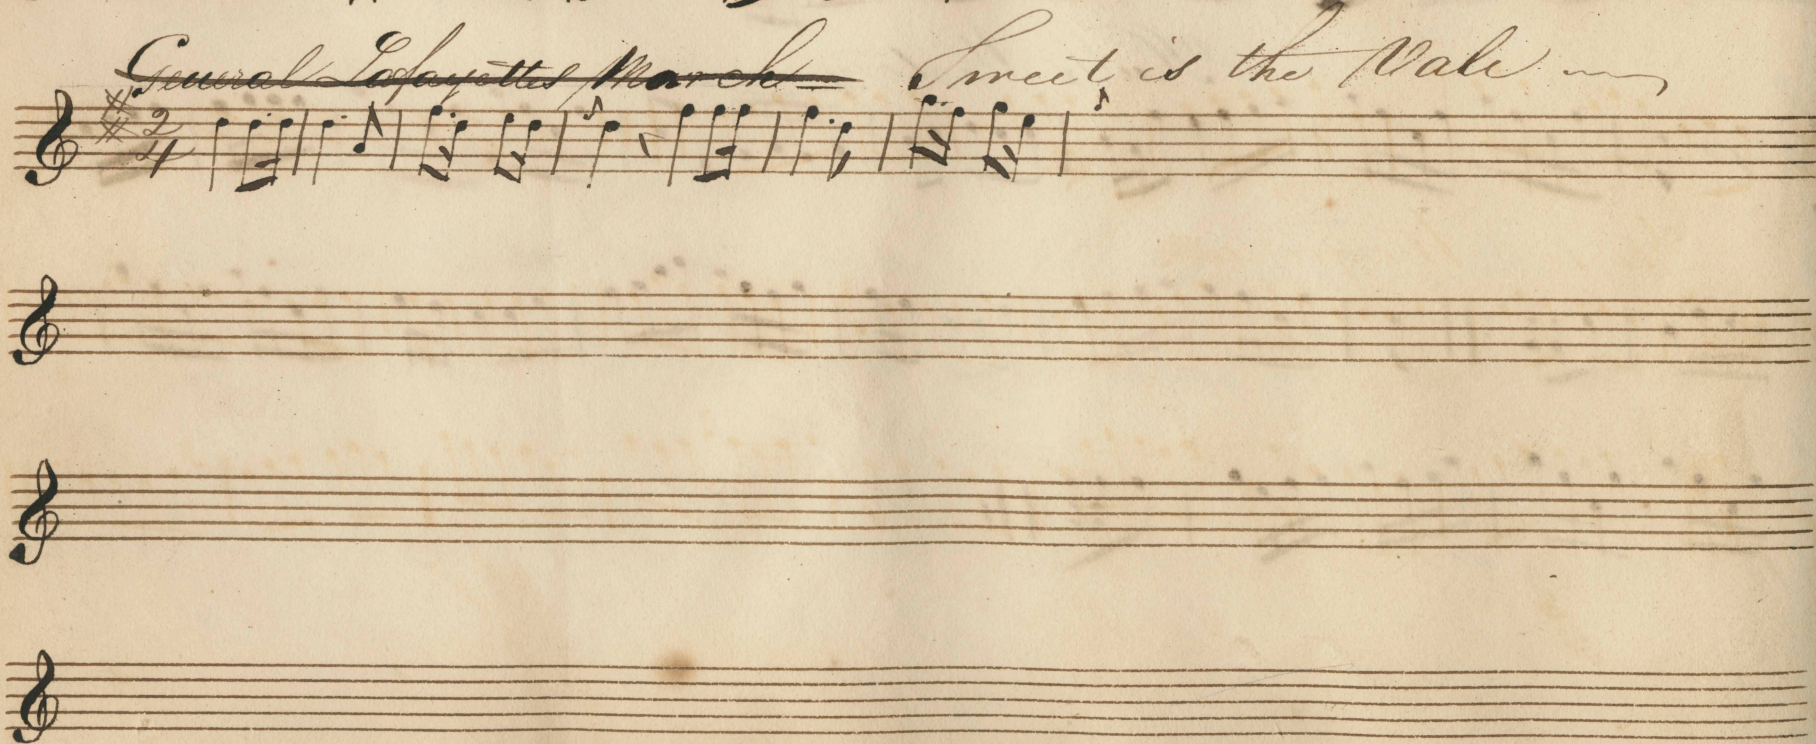 General Lafayettes March = Sweet is the Vale
2
4